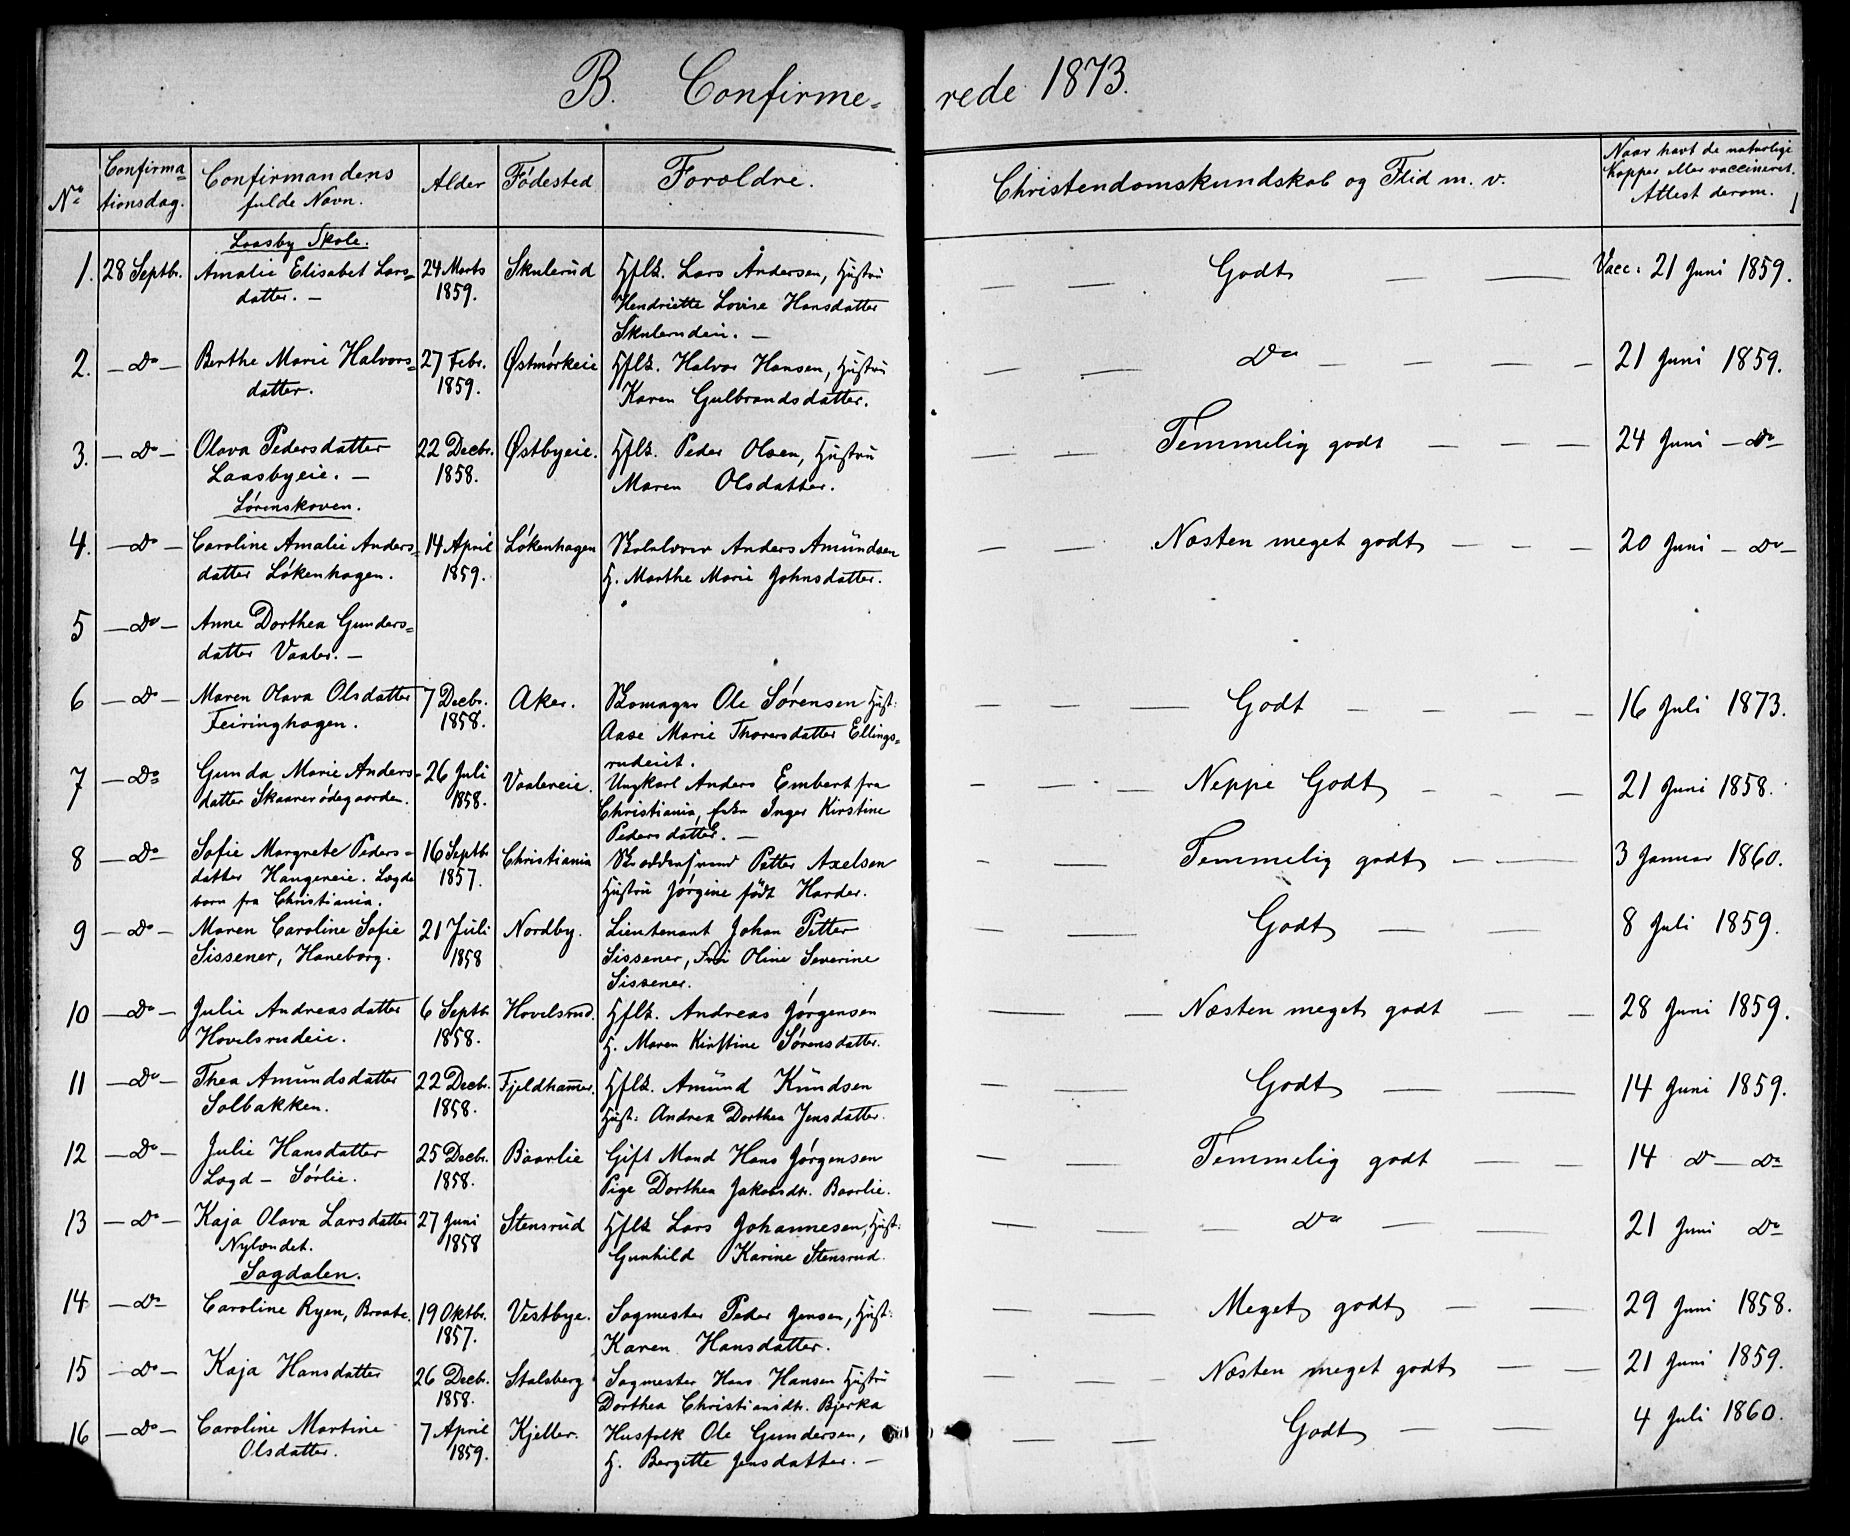 B. Confirme= rede 1873.
No Confirma=tionsdag. Confirmandens fulde Navn. Alder Födested Forældre. Christendomskundskab og Flid m. v. Naar havt de naturlige Kopper eller vaccineret. Attest derom.
Laasby Skole.
1. 28 Septbr. Amalie Elisabet Lars= 24 Marts Skulerud Hflk. Lars Andersen, Hustru — — Godt — — Vacc: 21 Juni 1859.
datter. — 1859. Hendriette Lovise Hansdatter
Skulerudeie. —
2. — Do — Berthe Marie Halvors= 27 Febr. Østmørkeie Hflk. Halvor Hansen, Hustru — — Do — — — — 21 Juni 1859.
datter. 1859. Karen Gulbrandsdatter.
3. — Do — Olava Pedersdatter 22 Decbr. Østbyeie. Hflk. Peder Olsen, Hustru — — Temmelig godt — — — 24 Juni — Do —
Laasbyeie. — 1858. Maren Olsdatter.
Lørenskoven.
4. — Do — Caroline Amalie Anders= 14 April Løkenhagen Skolelærer Anders Amundsen — — Næsten meget godt — — — 20 Juni — Do —
datter Løkenhagen. 1859. H. Marthe Marie Johnsdatter.
5 — Do — Anne Dorthea Gunders=
datter Vaaler. —
6 — Do — Maren Olava Olsdatter 7 Decbr. Aker. Skomager Ole Sørensen Hust: — — — Godt — — — — 16 Juli 1873.
Feiringhagen. 1858. Aase Marie Thorersdatter Ellings=
rudeiet.
7 — Do Gunda Marie Anders= 26 Juli Vaalereie. Ungkarl Anders Embert fra — — — Neppe Godt — — — 21 Juni 1858.
datter Skaarerødegaarden. 1858. Christiania, Enke Inger Kirstine
Pedersdatter. —
8 — Do — Sofie Margrete Peders= 16 Septbr Christiania Skræddersvend Petter Axelsen — — Temmelig godt — — 3 Januar 1860.
datter Haugereie. Lægde 1857. Hustru Jørgine født Harder.
barn fra Christiania.
9 — Do — Maren Caroline Sofie 21 Juli Nordby. Lieutenant Johan Petter — — Godt — — 8 Juli 1859.
Sissener, Haneborg. 1858 Sissener, Fru Oline Severine
Sissener.
10 — Do — Julie Andreasdatter 6 Septbr Hovelsrud. Hflk. Andreas Jørgensen — — Næsten meget godt — — 28 Juni 1859.
Hovelsrudeie. 1858. H. Maren Kirstine Sørensdatter.
11 — Do — Thea Amundsdatter 22 Decbr. Fjeldhamer. Hflk. Amund Knudsen — — Godt — — 14 Juni 1859.
Solbakken. 1858. Hust: Andrea Dorthea Jensdatter.
12 — Do — Julie Hansdatter 25 Decbr. Baarlie Gift Mand Hans Jørgensen — — Temmelig godt — — 14 D — Do
Lægd — Sørlie. 1858. Pige Dorthea Jakobsdtr. Baarlie.
13 — Do — Kaja Olava Larsdatter 27 Juni Stensrud Hflk Lars Johannesen, Hust: — — — Do — — 21 Juni Do
Nylændet. 1858 Gunhild Karine Stensrud.
Sagdalen.
14 — Do — Caroline Ryen, Braate. 19 Oktbr. Vestbye. Sagmester Peder Jensen, Hust: — — Meget godt — — 29 Juni 1858.
1857. Karen Hansdatter.
15 — Do — Kaja Hansdatter 26 Decbr. Stalsberg Sagmester Hans Hansen Hustru — — — Næsten meget godt — — 21 Juni 1859.
1858. Dorthea Christiansdtr. Bjerka
16 — Do — Caroline Martine 7 April Kjeller. Husfolk Ole Gundersen, — — Godt — — 4 Juli 1860.
Olsdatter. 1859. H. Bergitte Jensdatter. —